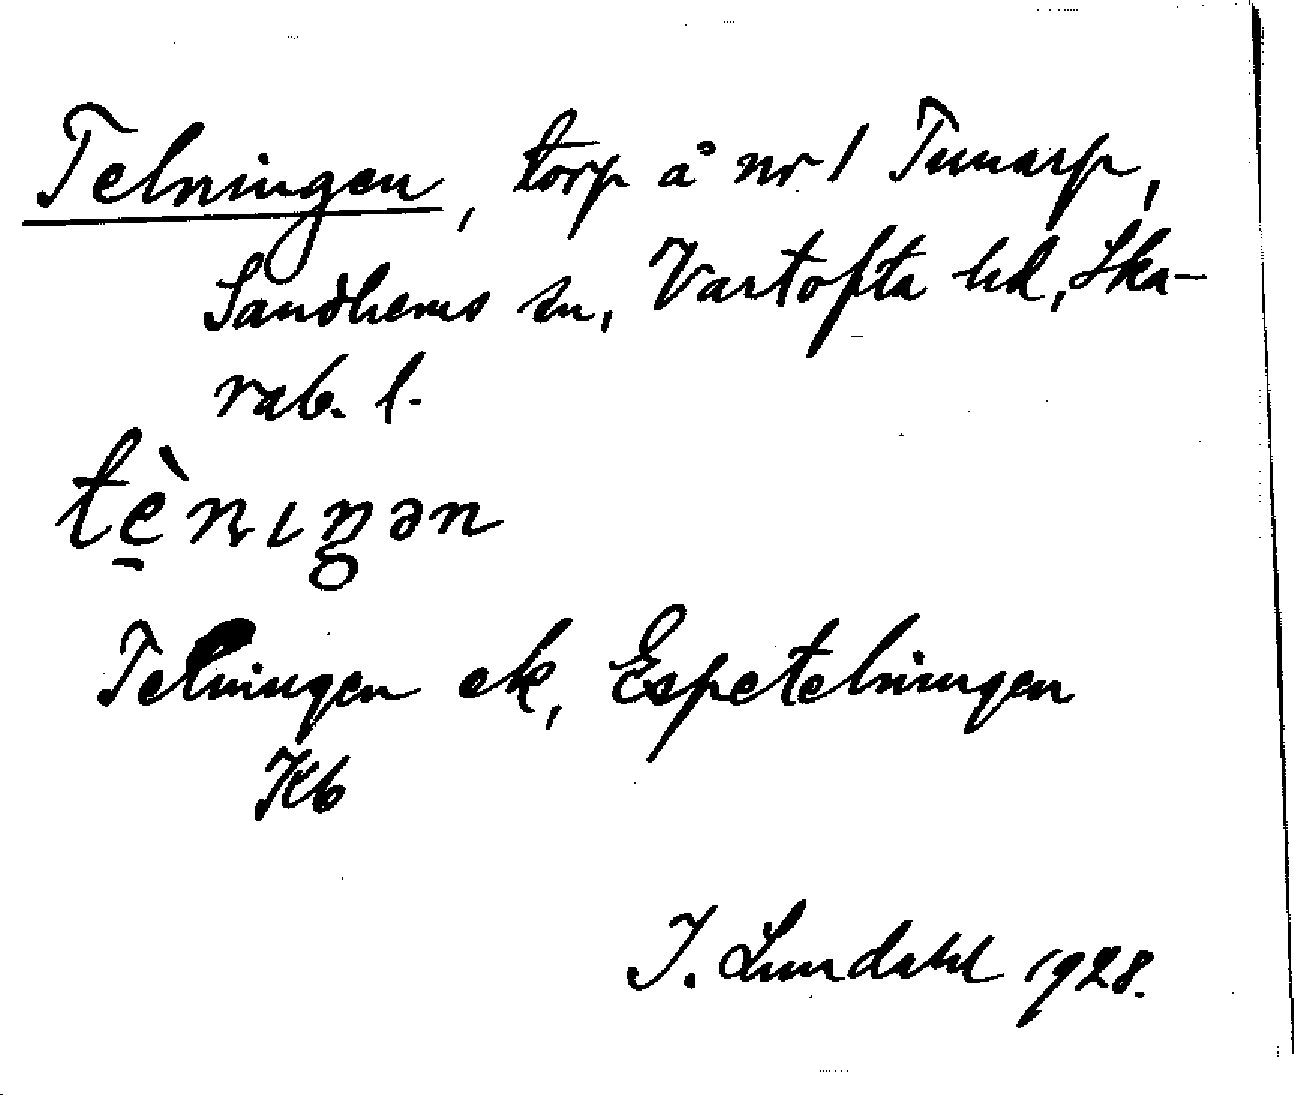 Telningen, torp å nr 1 Tunarp,
Sandhems sn, Vartofta hd, Ska-
rab. l.
tè̱ṇıŋən
Telningen ek, Espetelningen
Kb
I. Lundahl 1928.